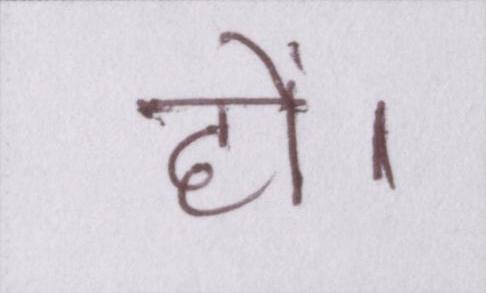 हों।